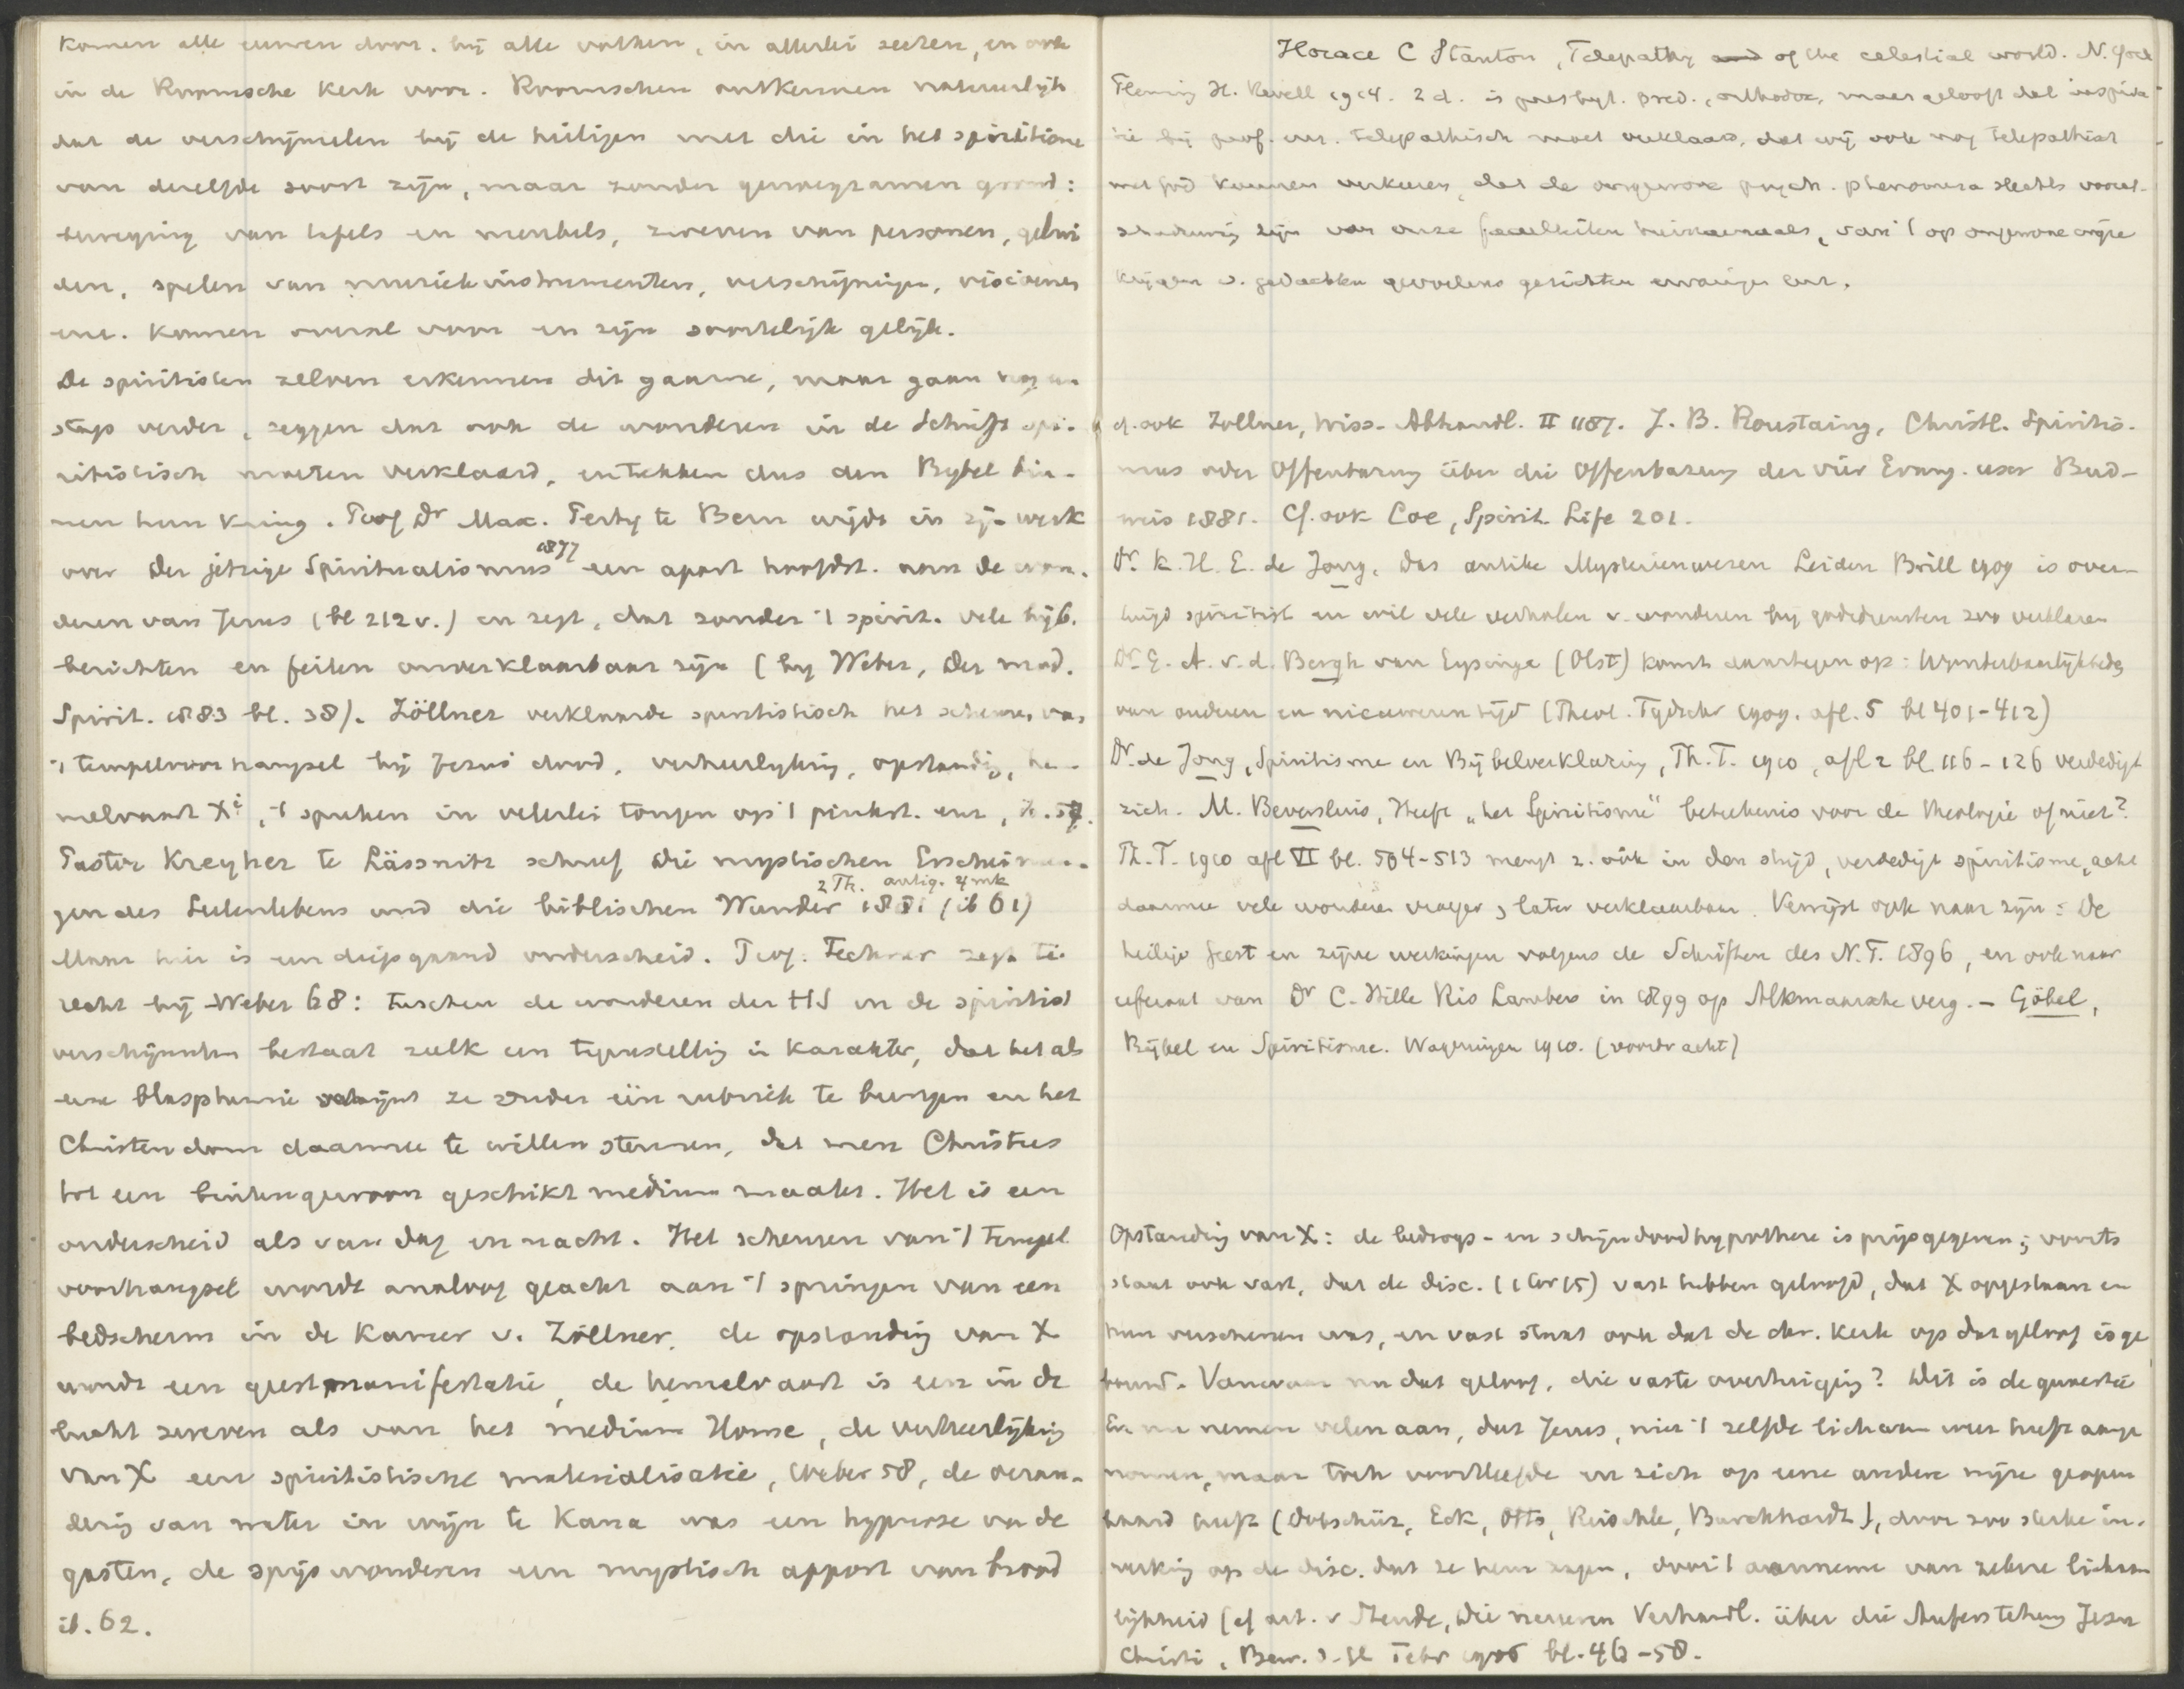 komen alle eeuwen door. bij alle volken, in allerlei secten, en ook
in de Roomsche Kerk voor. Roomschen ontkennen natuurlijk
dat de verschijnselen bij de heiligen met die in het spiritisme
van dezelfde soort zijn, maar zonder genoegzamen grond:
beweging van tafels en meubels, zweven van personen, gelui
den, spelen van muziekinstrumenten, verschijningen, visioenen
enz. komen overal voor en zijn soortelijk gelijk.
De spiritisten zelven erkennen dit gaarne, maar gaan nog een
stap verder, zeggen dat ook de wonderen in de Schrift spi-
ritistisch moeten verklaard, en trekken dus den Bybel bin-
nen hun kring. Prof Dr Max. Perty te Bern wijdt in zijn werk
over Der jetzige Spiritualismus 1877 een apart hoofdst. aan de won-
deren van Jezus (bl 212 v.) en zegt, dat zonder 't spirit. vele bijb.
berichten en feiten onverklaarbaar zijn (by Weber, Der mod.
Spirit. 1883 bl. 38). Zöllner verklaarde spiritistisch het scheuren van
't tempelvoorhangsel bij Jezus dood, verheerlyking, opstanding, he-
melvaart Xi, 't spreken in velerlei tongen op 't pinkst. enz,
Pastor Kreyher te Lässnitz schreef Die mystischen Erscheinun-
gen des Seelenlebens und die biblischen Wunder 2 Th. 1881 antiq. 4 mk (ib 61)
Maar hier is een diepgaand onderscheid. Prof. Fechner zegt te
recht bij Weber 68: tusschen de wonderen der HS en de spiritist
verschijnselen bestaat zulk een tegenstelling in karakter, dat het als
eene blasphemie schijnt ze onder één rubriek te brengen en het
Christendom daarmee te willen steunen, dat men Christus
tot een buitengewoon geschikt medium maakt. Het is een
onderscheid als van dag en nacht. Het scheuren van 't tempel
voorhangsel wordt analoog geacht aan 't springen van een
bedscherm in de Kamer v. Zöllner, de opstanding van X
wordt een geestmanifestatie, de hemelvaart is een in de
lucht zweven als van het medium Home, de verheerlijking
van X een spiritistische materialisatie, Weber 58, de veran-
dering van water in wijn te Kana was een hypnose van de
gasten, de spijswonderen een mystisch apport van brood
ib. 62.
Horace C Stanton, Telepathy of the celestial world. N. York
Fleming H. Revell 1914. 2 d. is presbyt. pred., orthodox, maar gelooft dat inspira-
tie bij prof. enz. telepathisch moet verklaard, dat wij ook nog telepathisch
met God kunnen verkeeren, dat de ongewone psych. phenomena slechts voor-
schaduwing zijn van onze faculteiten hiernamaals, van 't op ongewone wijze
krijgen v. gedachten gevoelens gezichten ervaringen enz.
cf. ook Zöllner, Wiss. Abhandl. II 1187. J. B. Roustaing, Christl. Spiritis-
mus oder Offenbarung über die Offenbarung der vier Evang. Bud-
weis 1881. Cf. ook Coe, Spirit. Life 201.
Dr. K. H. E. de Jong, Das antike Mysterienwesen Leiden Brill 1909 is over-
tuigd spiritist en wil vele verhalen v. wonderen bij godsdiensten zoo verklaren
Dr. G. A. v. d. Bergh van Eysinga (Olst) komt daartegen op: Wonderbaarlijkheden
van ouderen en nieuweren tijd (Theol. Tydschr 1909. afl. 5 bl 401-412)
Dr. de Jong, Spiritisme en Bijbelverklaring, Th. T. 1910, afl 2 bl 116-126 verdedigt
zich. M. Beversluis, Heeft „het Spiritisme" beteekenis voor de theologie of niet?
Th. T. 1910 afl VI bl. 504-513 mengt z. ook in den strijd, verdedigt spiritisme, acht
daarmee vele wonderen vroeger, later verklaarbaar. Verwijst ook naar zijn: De
heilige Geest en zijne werkingen volgens de Schriften des N. T. 1896, en ook naar
referaat van Dr C. Hille Ris Lambers in 1899 op Alkmaarsche verg. - Göbel,
Bijbel en Spiritisme. Wageningen 1910. (voordracht)
Opstanding van X: de bedrogs- en schijndoodhypothese is prijsgegeven; voorts
staat ook vast, dat de disc. (1 Cor 15) vast hebben geloofd, dat X opgestaan en
hun verschenen was, en vast staat ook dat de chr. Kerk op dat geloof is ge
bouwd. Vanwaar nu dat geloof, die vaste overtuiging? Dit is de quaestie
En nu nemen velen aan, dat Jezus, niet 't zelfde lichaam weer heeft aange
nomen, maar toch voortleefde en zich op eene andere wijze geopen
baard heeft (Dobschütz, Eck, Otto, Reischle, Burckhardt), door zoo sterke in-
werking op de disc. dat ze hem zagen, door 't aannemen van zekere lichaam
lijkheid (cf art. v Steude, Die neueren Verhandl. über die Auferstehung Jesu
Christi, Bew. d. Gl Febr 1906 bl. 46-58.